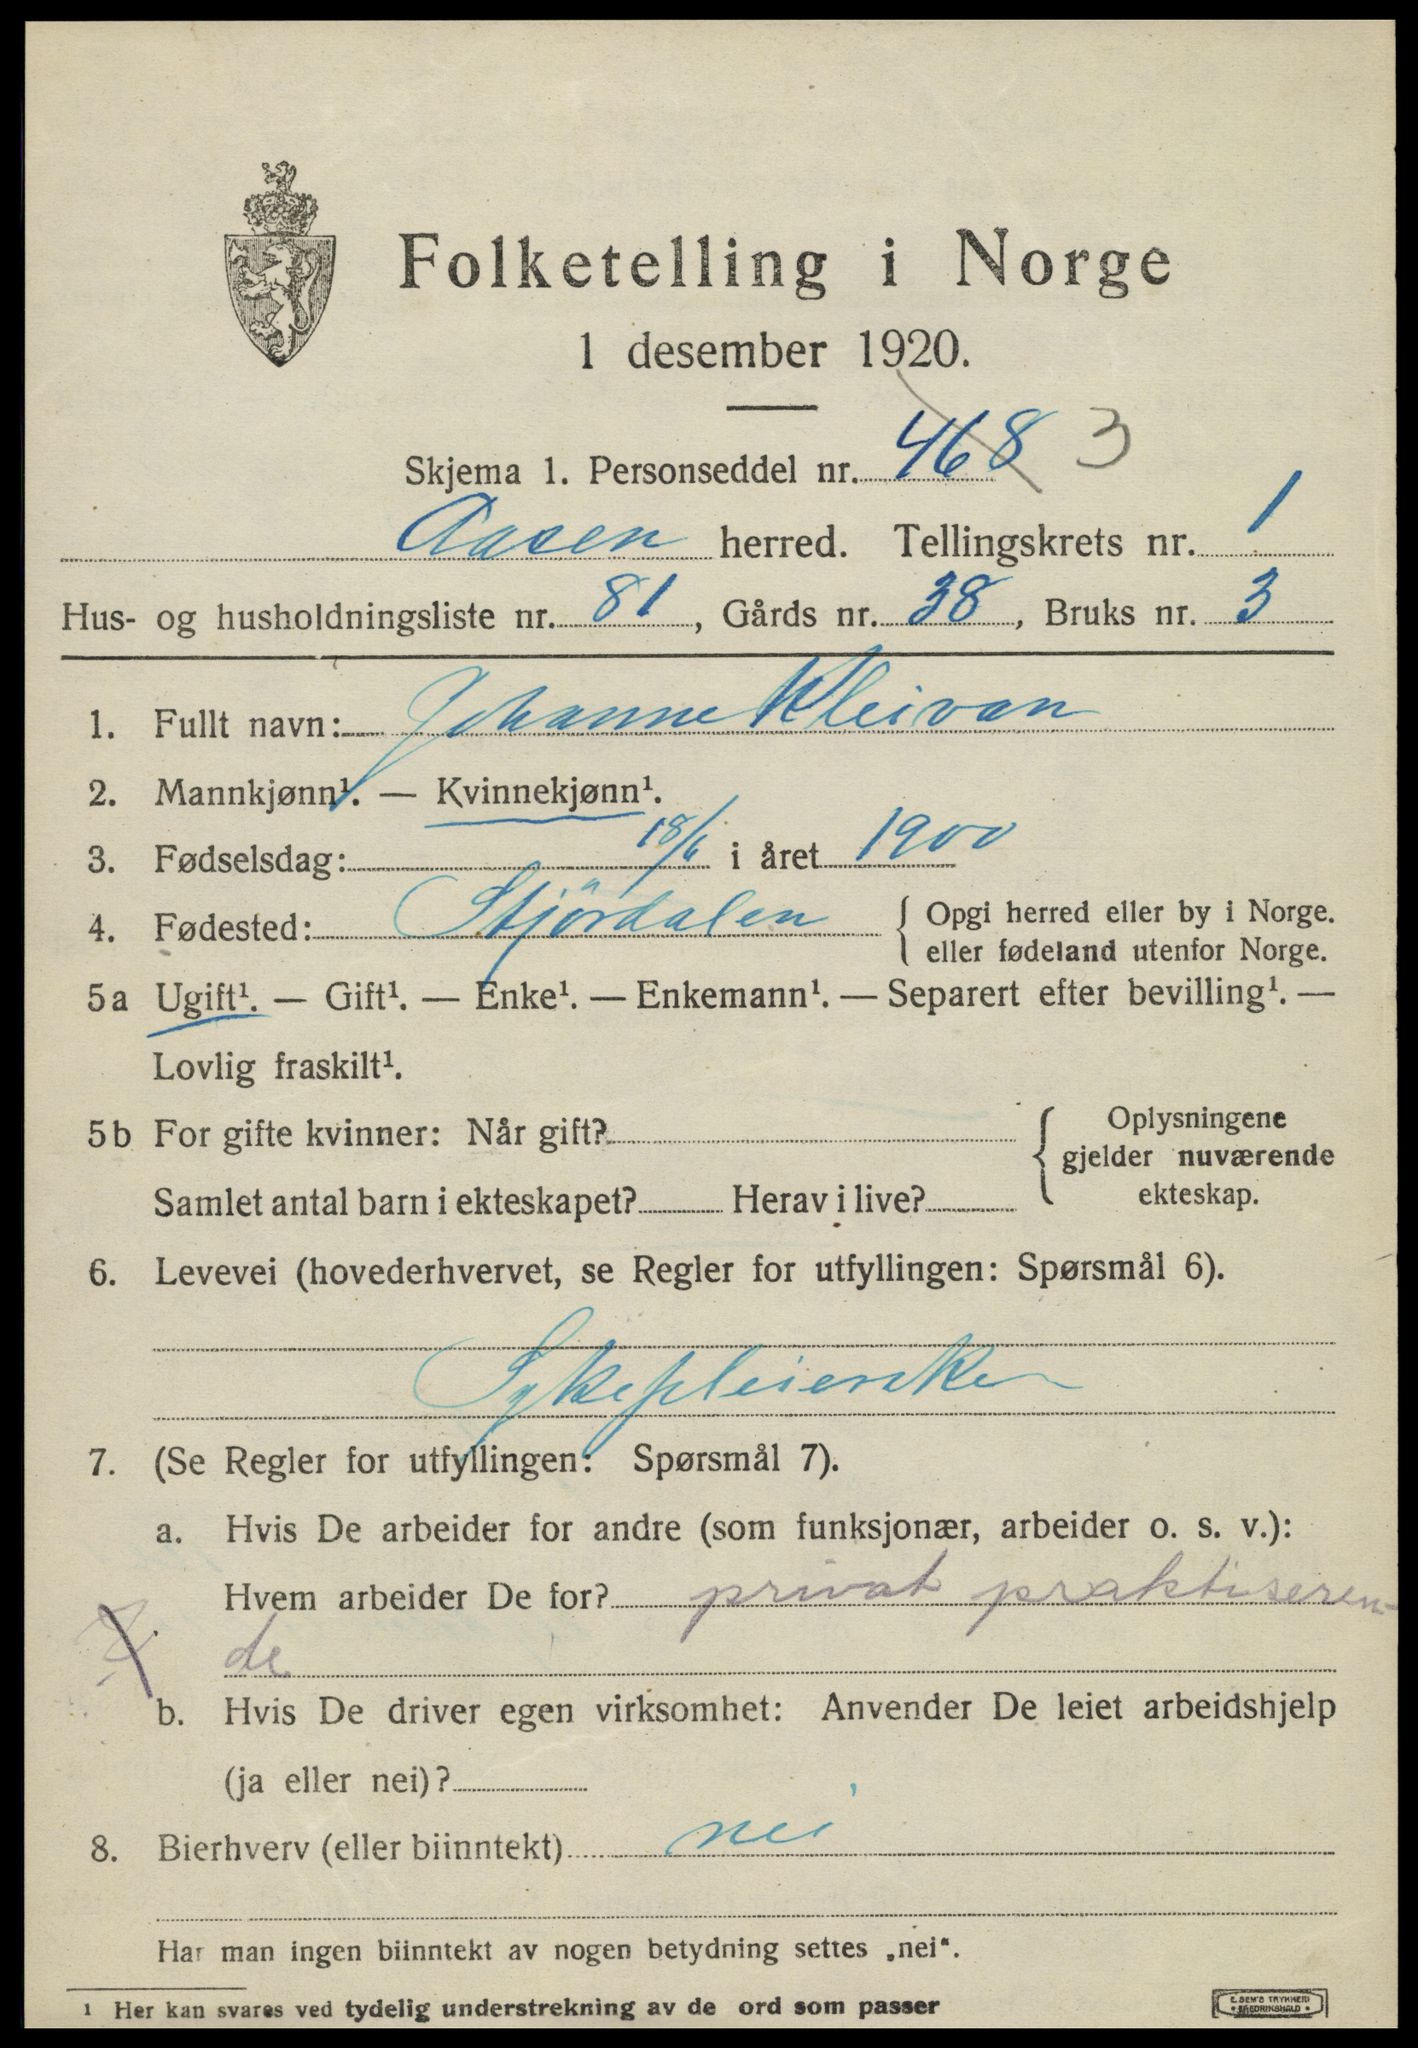 Folketelling i Norge
1 desember 1920.
Skjema 1. Personseddel nr. 468 3
Aasen herred. Tellingskrets nr. 1
Hus- og husholdningsliste nr. 81, Gårds nr. 38, Bruks nr. 3
1. Fullt navn: Johanne Kleivan
2. Mannkjønn¹. — Kvinnekjønn¹.
3. Fødselsdag: 18/6 i året 1900
4. Fødested: Stjördalen { Opgi herred eller by i Norge.
eller fødeland utenfor Norge.
5a Ugift¹. — Gift¹. — Enke¹. — Enkemann¹. — Separert efter bevilling¹. —
Lovlig fraskilt¹.
5b For gifte kvinner: Når gift? { Oplysningene
gjelder nuværende
Samlet antal barn i ekteskapet? Herav i live? ekteskap.
6. Levevei (hovederhvervet, se Regler for utfyllingen: Spørsmål 6).
Sykepleierske
7. (Se Regler for utfyllingen: Spørsmål 7).
a. Hvis De arbeider for andre (som funksjonær, arbeider o. s. v.):
Hvem arbeider De for? privat praktiseren-
de
b. Hvis De driver egen virksomhet: Anvender De leiet arbeidshjelp
(ja eller nei)?
8. Bierhverv (eller biinntekt) nei
Har man ingen biinntekt av nogen betydning settes „nei“.
¹ Her kan svares ved tydelig understrekning av de ord som passer
E. SEM'S TRYKKERI
• FREDRIKSHALD •